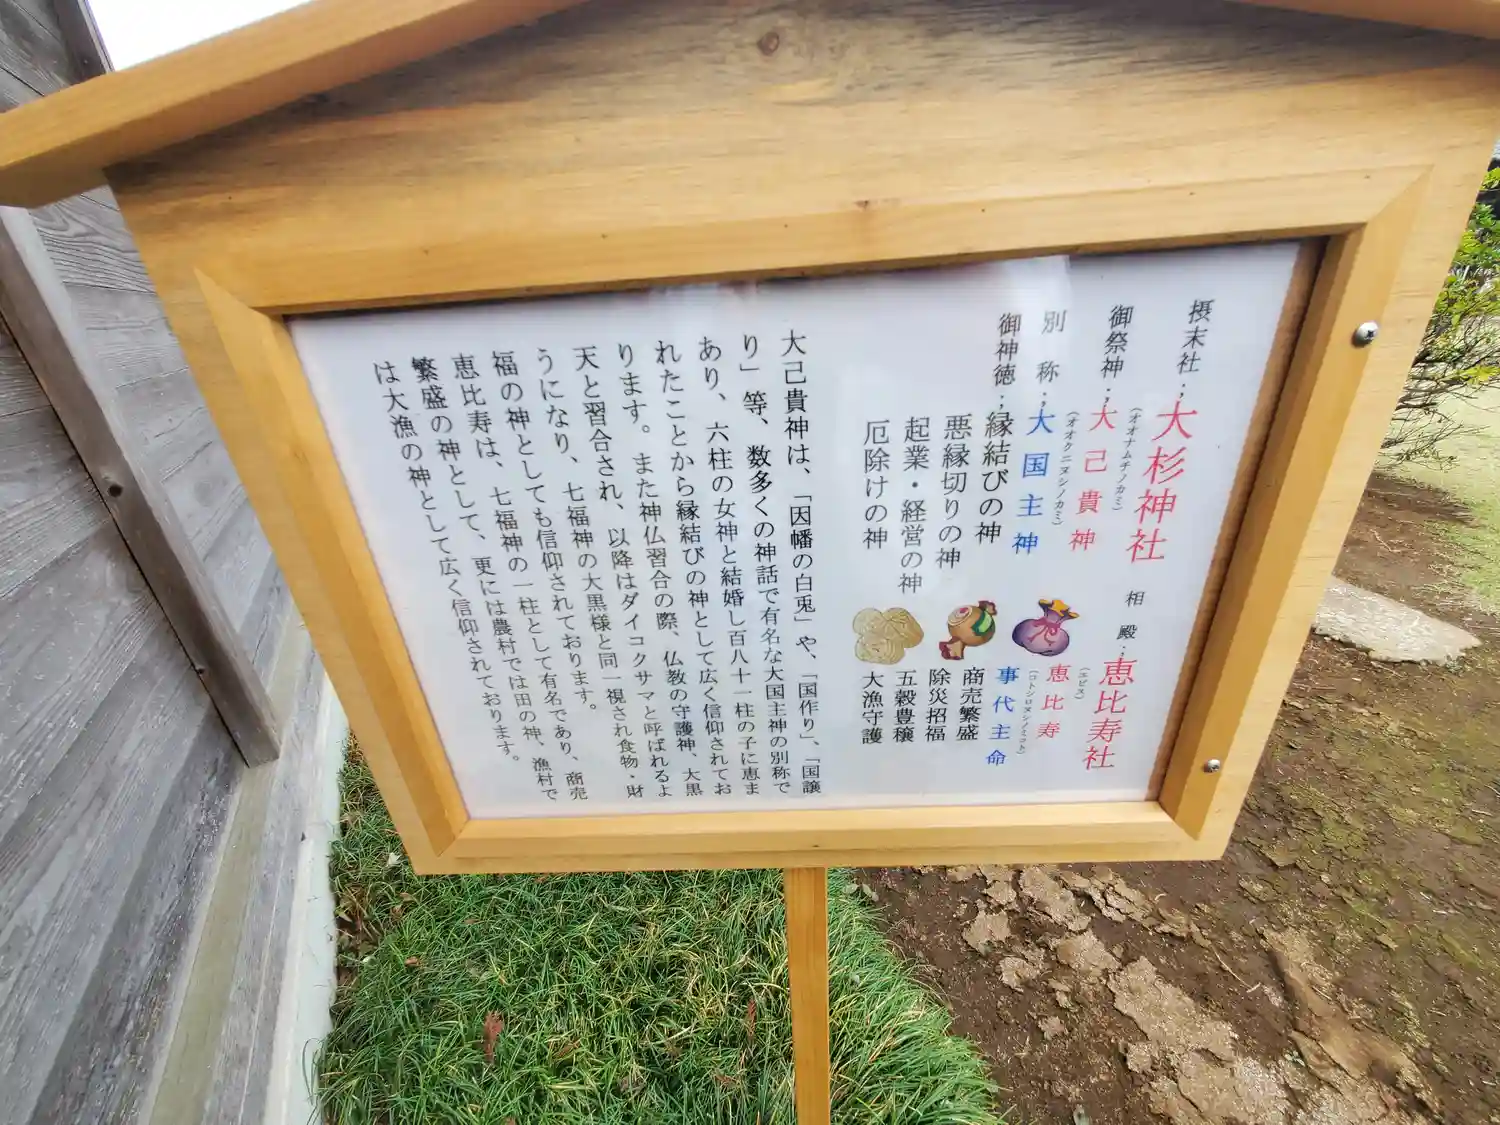 摂末社：大杉神社　相殿：恵比寿社
（オオナムチノカミ）　（エビス）
御祭神：大己貴神　恵比寿
（オオクニヌシノカミ）　（コトシロヌシノミコト）
別　称：大国主神　事代主命
御神徳：縁結びの神　商売繁盛
悪縁切りの神　除災招福
起業・経営の神　五穀豊穣
厄除けの神　大漁守護
大己貴神は、「因幡の白兎」や、「国作り」、「国譲
り」等、数多くの神話で有名な大国主神の別称で
あり、六柱の女神と結婚し百八十一柱の子に恵ま
れたことから縁結びの神として広く信仰されてお
ります。また神仏習合の際、仏教の守護神、大黒
天と習合され、以降はダイコクサマと呼ばれるよ
うになり、七福神の大黒様と同一視され食物・財
福の神としても信仰されております。
恵比寿は、七福神の一柱として有名であり、商売
繁盛の神として、更には農村では田の神、漁村で
は大漁の神として広く信仰されております。